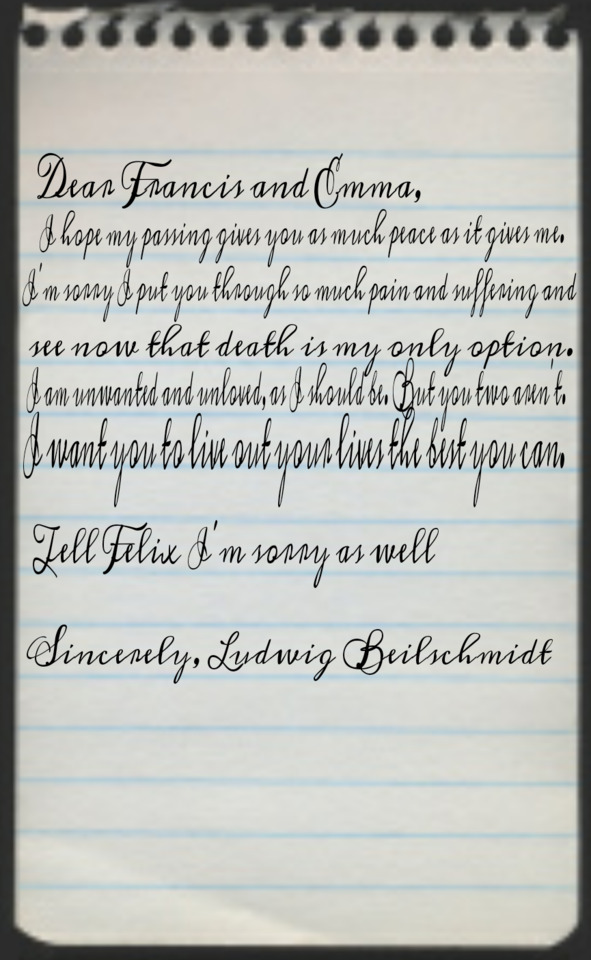 Dear Francis and Emma,
I hope my passing gives you as much peace as it gives me.
I'm sorry I put you through so much pain and suffering and
see now that death is my only option.
I am unwanted and unloved, as I should be. But you two aren't.
I want you to live out your lives the best you can.
Tell Felix I'm sorry as well
Sincerely, Ludwig Beilschmidt